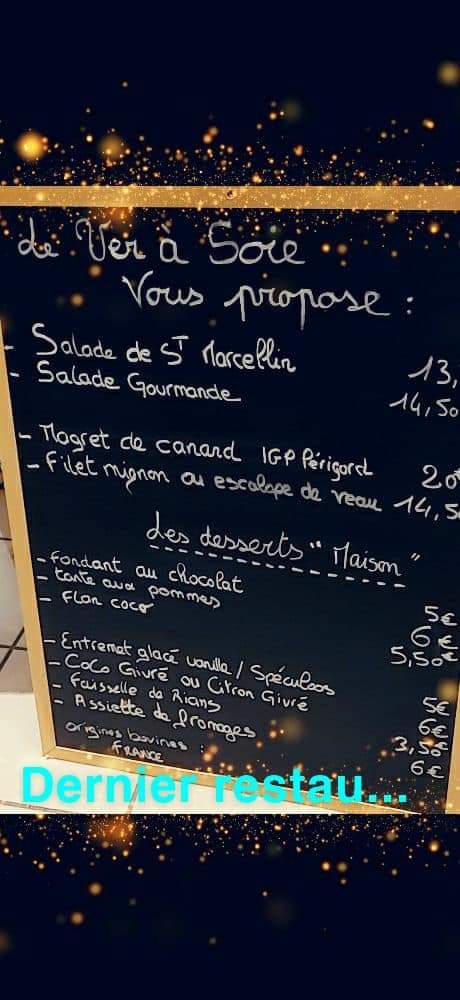 Le Ver à Soie
Vous propose :
- Salade de St Marcellin 13,
- Salade Gourmande 14,50
- Magret de canard IGP Périgord 20€
- Filet mignon ou escalope de veau 14,5
Les desserts "Maison"
- Fondant au chocolat 5€
- tarte aux pommes 6€
- Flan coco 5,50€
- Entremet glacé vanille / Spéculoos 5€
- Coco Givré ou Citron Givré 6€
- Faisselle de Rians 3,50€
- Assiette de fromages 6€
origines bovines :
FRANCE
Dernier restau...